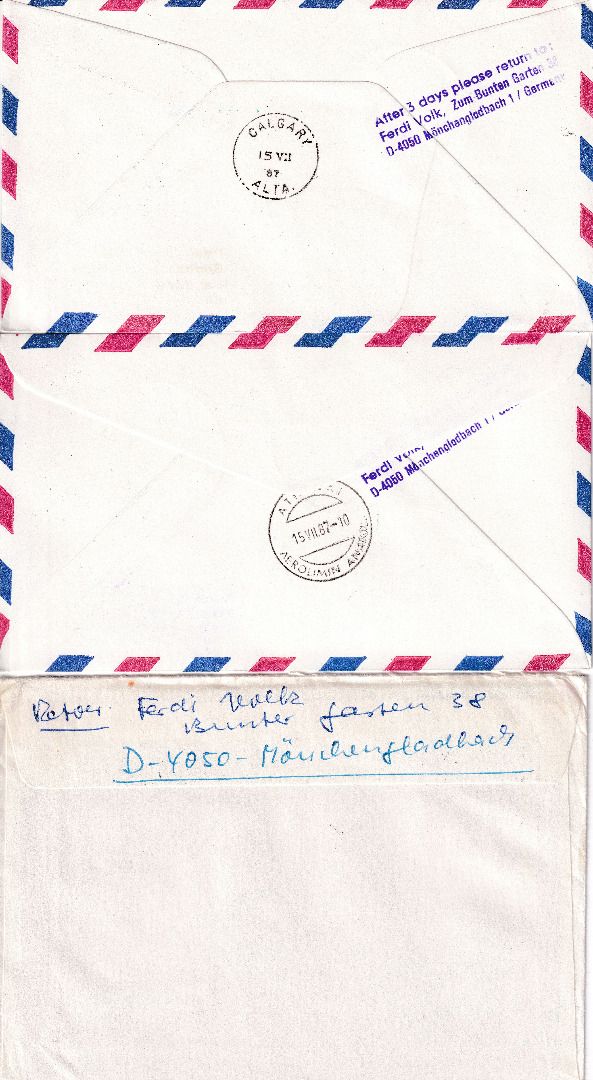 After 3 days please return to:
Ferdi Volk, Zum Bunten Garten 38
D-4050 Mönchengladbach 1 / Germany
CALGARY
15 VII
87
ALTA.
Ferdi Volk,
D-4050 Mönchengladbach 1 /
15 VII.87-10
Ferdi Volk
Bunter Garten 38
D-4050-Mönchengladbach